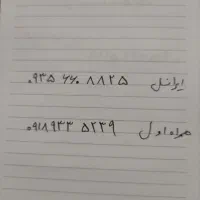 ایرانسل ۰۹۳۵ ۶۶۰ ۸۸۲۵
همراه اول ۰۹۱۸ ۹۳۳ ۵۲۳۹